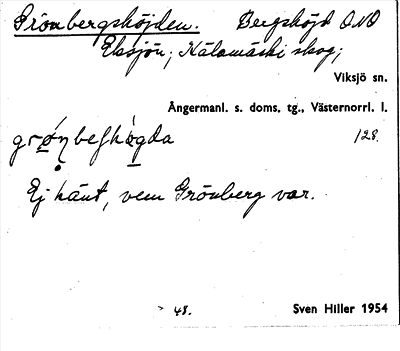 Grönbergshöjden. Bergshöjd ONO
Eksjön, Kälamäski skog;
Viksjö sn.
Ångermanl. s. doms. tg., Västernorrl. l.
128.
Ej känt, vem Grönberg var.
48.
Sven Hiller 1954